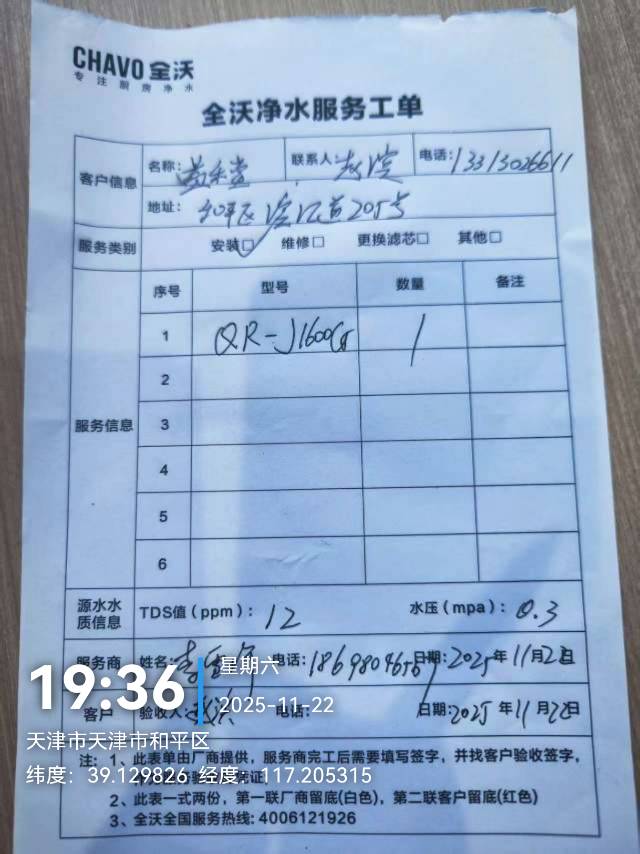 CHAVO 全沃
专注厨房净水
全沃净水服务工单
客户信息 名称: 联系人: 电话: 13313026611
地址: 和平区滨江道205号
服务类别 安装☑ 维修□ 更换滤芯□ 其他□
服务信息 序号 型号 数量 备注
1 QR-J1600G 1
2
3
4
5
6
源水水质信息 TDS值(ppm): 12 水压(mpa): 0.3
服务商 姓名: 李 电话: 日期: 2025年11月22日
客户 验收人: 电话: 日期: 2025年11月22日
注: 1、此表单由厂商提供,服务商完工后需要填写签字,并找客户验收签字,
凭证
2、此表一式两份,第一联厂商留底(白色),第二联客户留底(红色)
3、全沃全国服务热线: 4006121926
19:36
星期六
2025-11-22
天津市天津市和平区
纬度: 39.129826 经度: 117.205315